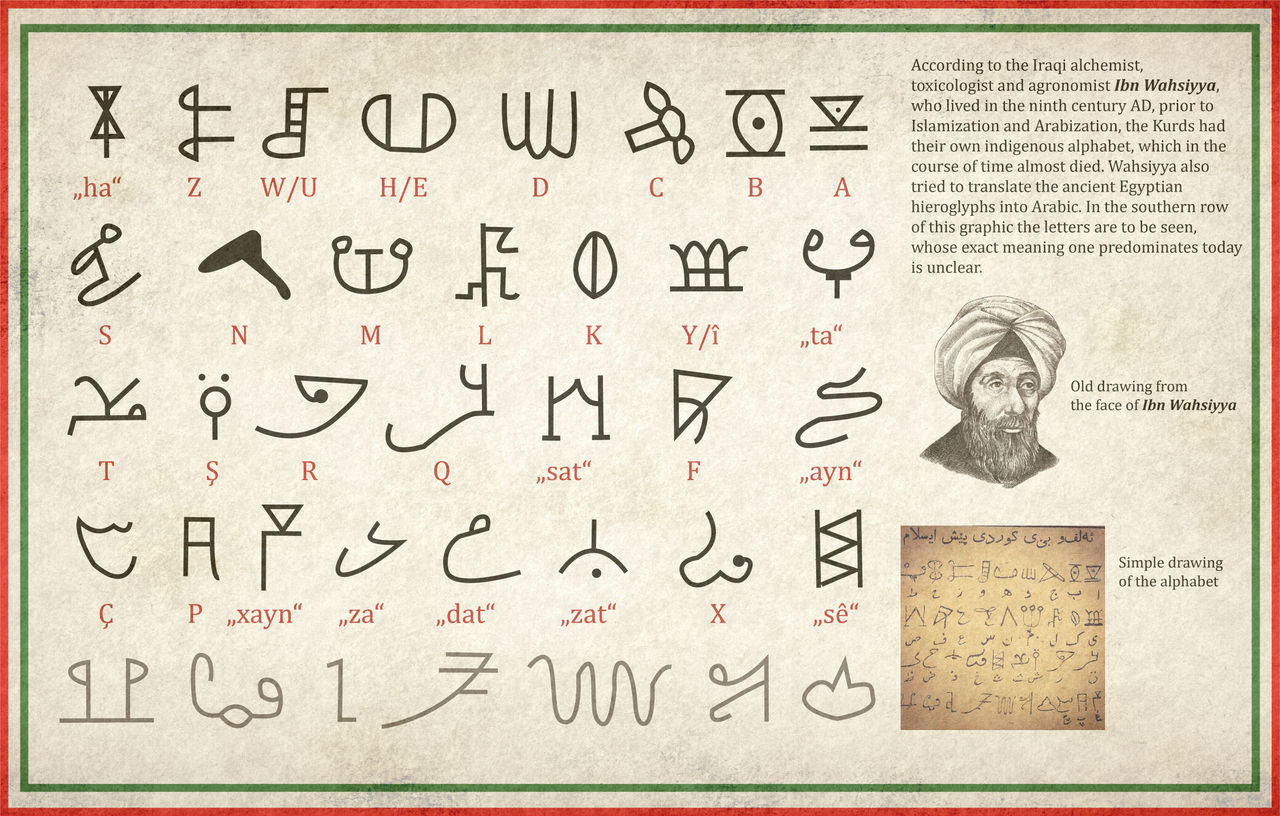 „ha“ Z W/U H/E D C B A
S N M L K Y/î „ta“
T Ş R Q „sat“ F „ayn“
Ç P „xayn“ „za“ „dat“ „zat“ X „sê“
According to the Iraqi alchemist,
toxicologist and agronomist Ibn Wahsiyya,
who lived in the ninth century AD, prior to
Islamization and Arabization, the Kurds had
their own indigenous alphabet, which in the
course of time almost died. Wahsiyya also
tried to translate the ancient Egyptian
hieroglyphs into Arabic. In the southern row
of this graphic the letters are to be seen,
whose exact meaning one predominates today
is unclear.
Old drawing from
the face of Ibn Wahsiyya
ئەلفو بێی کوردی پێش ایسلام
Simple drawing
of the alphabet